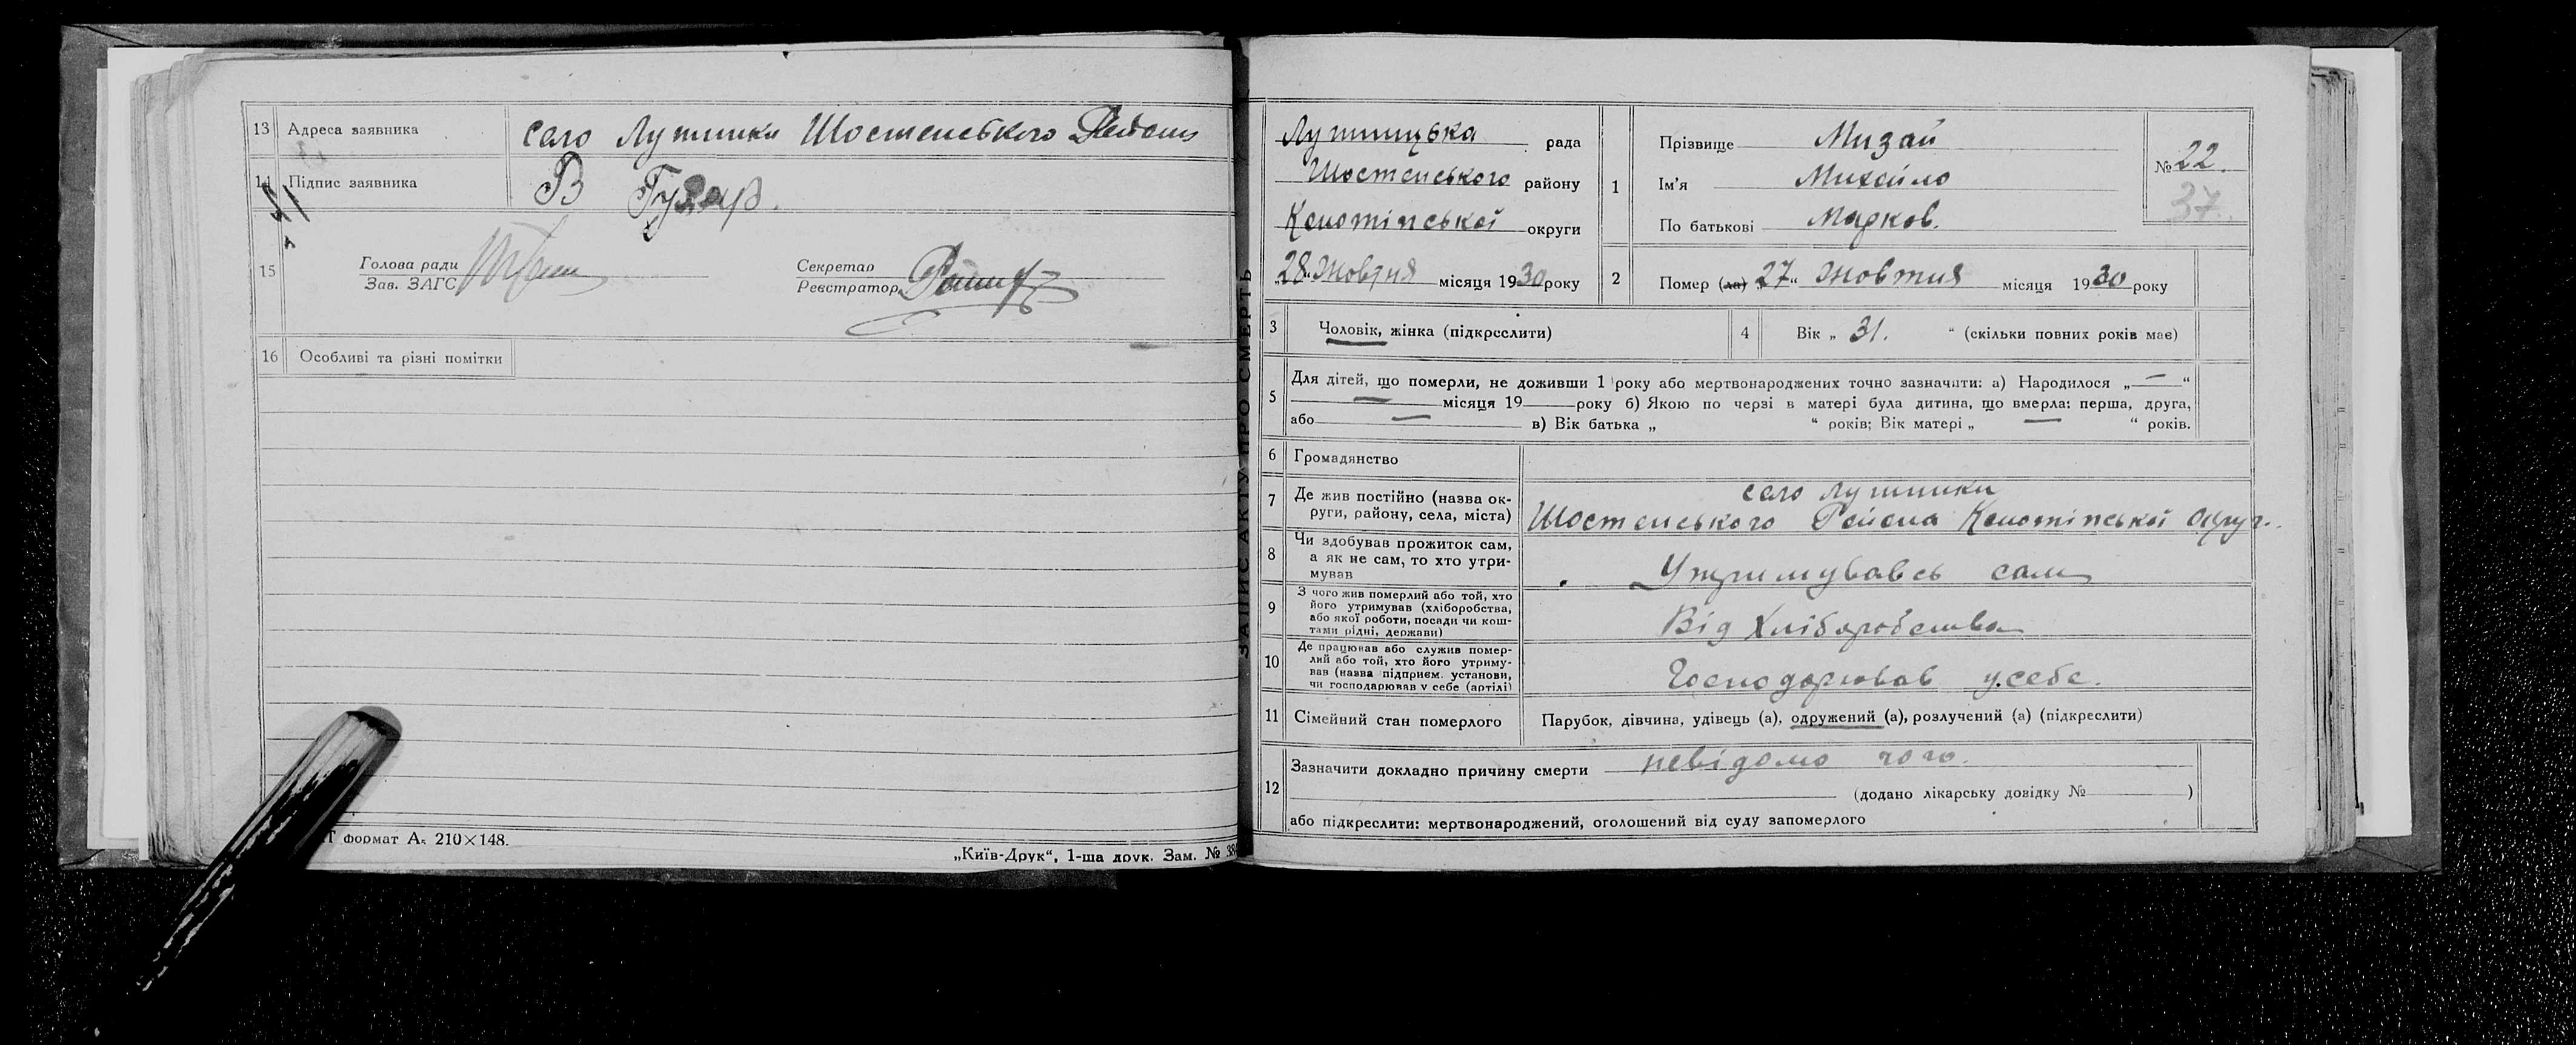 13 Адреса заявника село Лушники Шостенського Району
14 Підпис заявника В Гузар.
15 Голова ради
Зав. ЗАГС
Секретар
Реєстратор
16 Особливі та різні помітки
формат А₅ 210×148.
„Київ-Друк“, 1-ша друк. Зам. № 38
ЗАПИС АКТУ ПРО СМЕРТЬ
Лушницька рада
Шостенського району
Конотіпської округи
„28“ Жовтня місяця 1930 року
1 Прізвище Мизай
Ім'я Михайло
По батькові Марков.
№ 22.
37.
2 Помер (ла) „27“ Жовтня місяця 1930 року
3 Чоловік, жінка (підкреслити)
4 Вік „ 31. “ (скільки повних років має)
5 Для дітей, що померли, не доживши 1 року або мертвонароджених точно зазначити: а) Народилося „—“
— місяця 19 року б) Якою по черзі в матері була дитина, що вмерла: перша, друга,
або — в) Вік батька „ “ років; Вік матері „ — “ років.
6 Громадянство
7 Де жив постійно (назва ок-
руги, району, села, міста)
село Лушники
Шостенського Района Конотіпської округ.
8 Чи здобував прожиток сам,
а як не сам, то хто утри-
мував
Утримувавсь сам
9 З чого жив померлий або той, хто
його утримував (хліборобства,
або якої роботи, посади чи кош-
тами рідні, держави)
Від Хліборобства
10 Де працював або служив помер-
лий або той, хто його утриму-
вав (назва підприєм. установи,
чи господарював у себе (артілі)
Господарював у себе.
11 Сімейний стан померлого Парубок, дівчина, удівець (а), одружений (а), розлучений (а) (підкреслити)
12 Зазначити докладно причину смерти невідомо чого.
(додано лікарську довідку № )
або підкреслити: мертвонароджений, оголошений від суду запомерлого